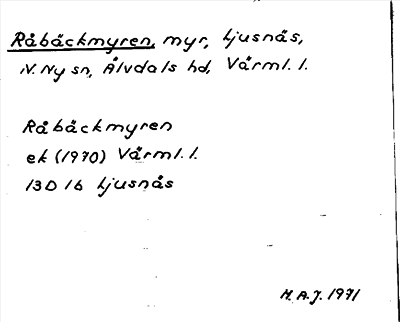 Råbäckmyren, myr, Ljusnäs,
N. Ny sn, Älvdals hd, Värml. l.
Råbäckmyren
ek (1970) Värml. l.
13D 1b Ljusnås
H.A.J. 1971